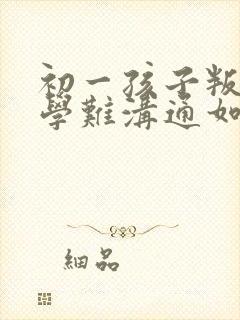 初一孩子叛
學難溝通如
細品